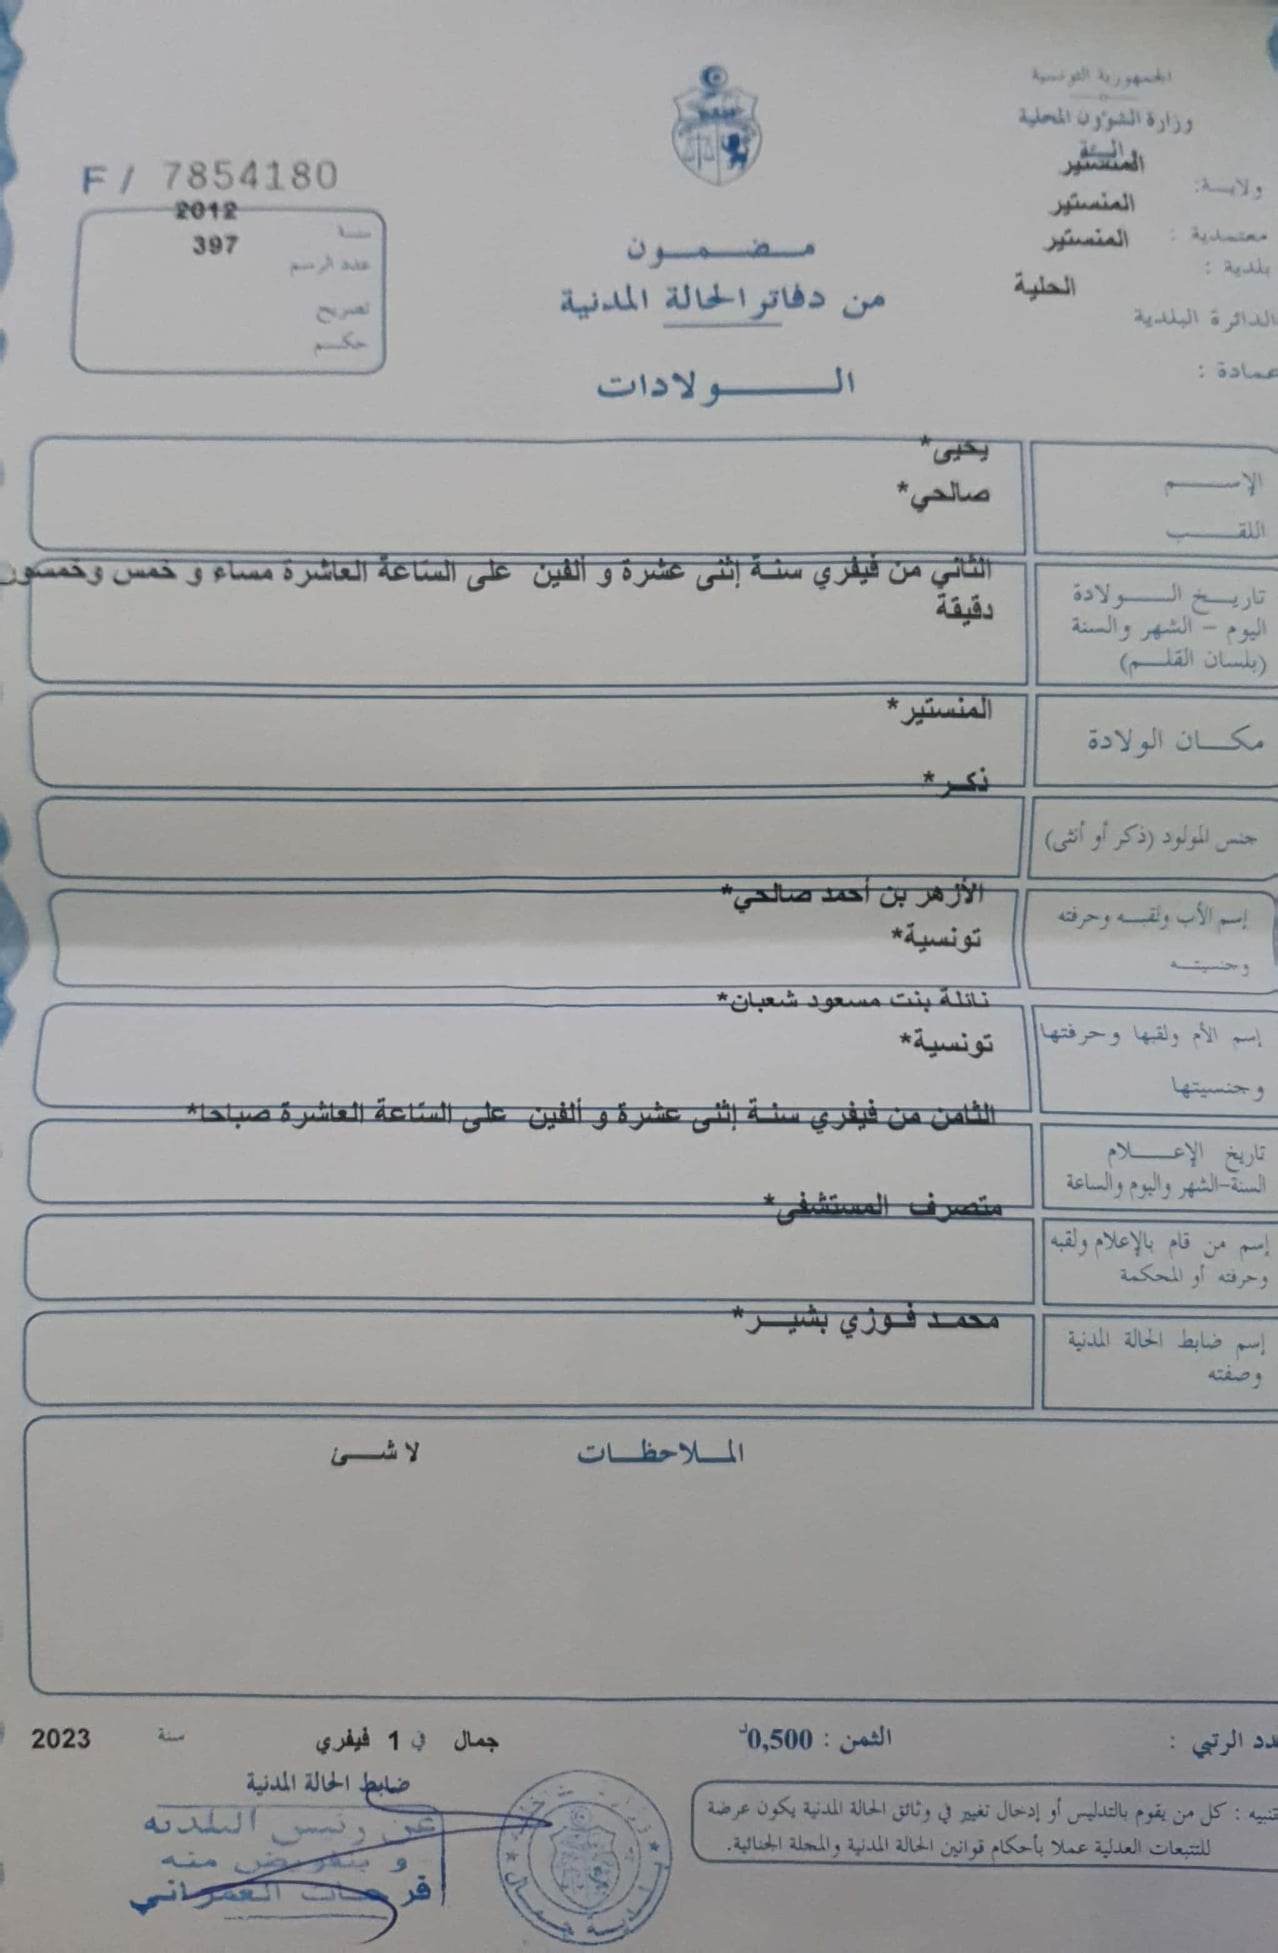 الجمهورية التونسية
وزارة الشؤون المحلية
والبيئة
ولايــة: المنستير
معتمدية : المنستير
بلدية : المنستير
الدائرة البلدية الحلية
عمادة :
F / 7854180
سنة 2012
عدد الرسم 397
تصريح
حكم
مضمون
من دفاتر الحالة المدنية
الولادات
الإسم يحيى*
اللقب صالحي*
تاريخ الولادة
اليوم – الشهر والسنة
(بلسان القلم)
الثاني من فيفري سنة إثنى عشرة و ألفين على الساعة العاشرة مساء و خمس وخمسون
دقيقة
مكان الولادة المنستير*
جنس المولود (ذكر أو أنثى) ذكر*
إسم الأب ولقبه وحرفته
وجنسيته
الأزهر بن أحمد صالحي*
تونسية*
إسم الأم ولقبها وحرفتها
وجنسيتها
نائلة بنت مسعود شعبان*
تونسية*
تاريخ الإعلام
السنة-الشهر واليوم والساعة
الثامن من فيفري سنة إثنى عشرة و ألفين على الساعة العاشرة صباحا*
إسم من قام بالإعلام ولقبه
وحرفته أو المحكمة
متصرف المستشفى*
إسم ضابط الحالة المدنية
وصفته
محمد فوزي بشير*
الملاحظات لا شئ
عدد الرتبي :
الثمن : 0,500د
جمال في 1 فيفري سنة 2023
ضابط الحالة المدنية
عن رئيس البلدية
و بتفويض منه
فرحات العمراني
بلدية جمال
تنبيه : كل من يقوم بالتدليس أو إدخال تغيير في وثائق الحالة المدنية يكون عرضة
للتتبعات العدلية عملا بأحكام قوانين الحالة المدنية والمجلة الجنائية.